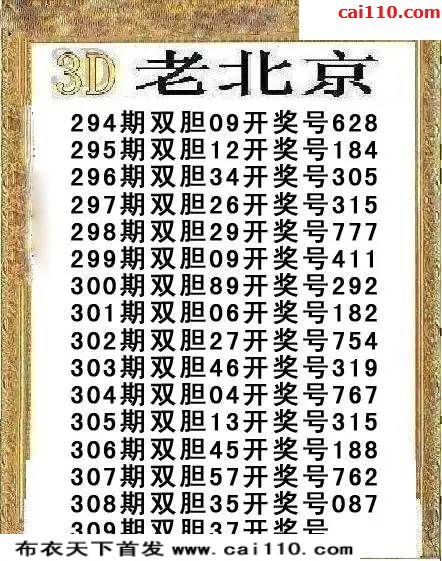 cai110.com
3D 老北京
294期双胆09开奖号628
295期双胆12开奖号184
296期双胆34开奖号305
297期双胆26开奖号315
298期双胆29开奖号777
299期双胆09开奖号411
300期双胆89开奖号292
301期双胆06开奖号182
302期双胆27开奖号754
303期双胆46开奖号319
304期双胆04开奖号767
305期双胆13开奖号315
306期双胆45开奖号188
307期双胆57开奖号762
308期双胆35开奖号087
309期双胆37开奖号
布衣天下首发 www.cai110.com